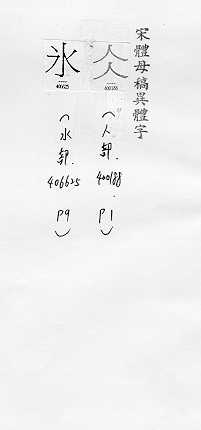 宋體母稿異體字
仌
400188
(人部.400188.P1)
氷
406625
(水部.406625 P9)